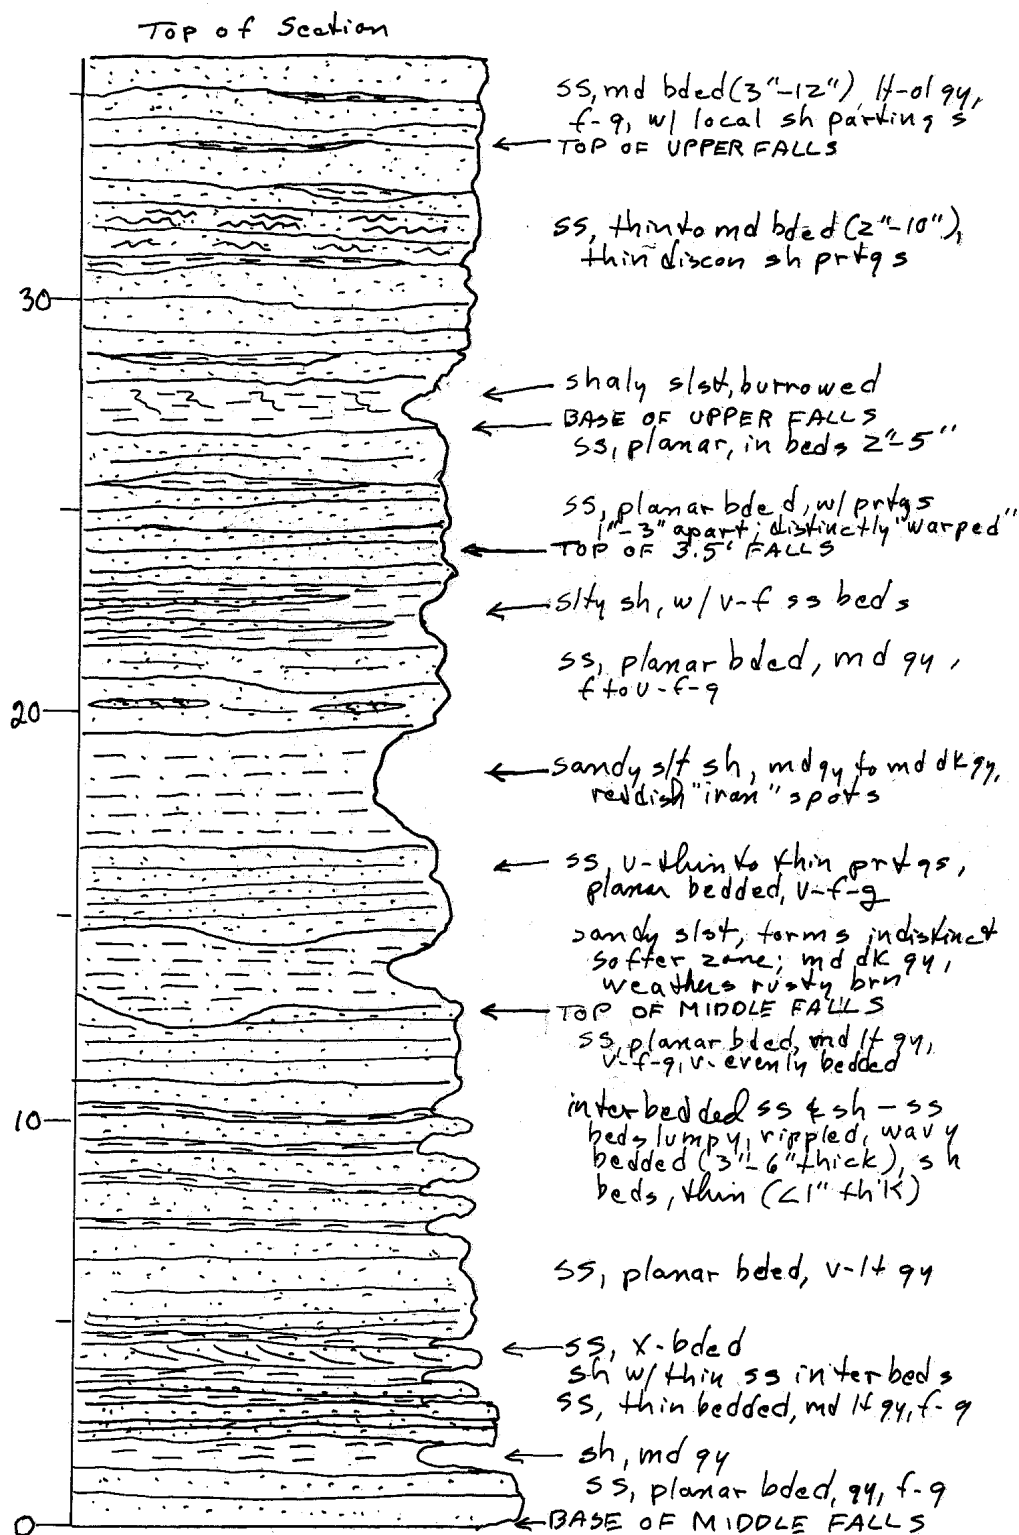 Top of Section
ss, md bded (3"-12") lt-ol gy,
f-g, w/ local sh partings
TOP OF UPPER FALLS
ss, thin to md bded (2"-10"),
thin discon sh prtgs
30
shaly slst, burrowed
BASE OF UPPER FALLS
ss, planar, in beds 2"-5"
ss, planar bded, w/ prtgs
1"-3" apart; distinctly "warped"
TOP OF 3.5' FALLS
slty sh, w/ v-f ss beds
ss, planar bded, md gy,
f to v-f-g
20
sandy slt sh, md gy to md dk gy,
reddish "iron" spots
ss, v-thin to thin prtgs,
planar bedded, v-f-g
sandy slst, forms indistinct
softer zone; md dk gy,
weathers rusty brn
TOP OF MIDDLE FALLS
ss, planar bded, md lt gy,
v-f-g, v. evenly bedded
10
interbedded ss & sh - ss
beds lumpy, rippled, wavy
bedded (3"-6" thick), sh
beds, thin (<1" thk)
ss, planar bded, v-lt gy
ss, x-bded
sh w/ thin ss interbeds
ss, thin bedded, md lt gy, f-g
sh, md gy
ss, planar bded, gy, f-g
0
BASE OF MIDDLE FALLS